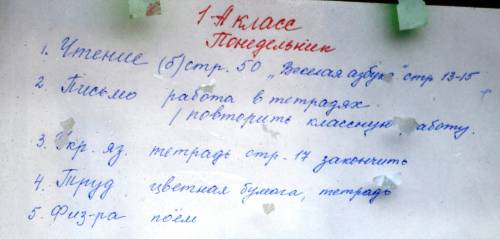 1-А класс
Понедельник
1. Чтение (б) стр. 50 „Веселая азбука" стр 13-15
2. Письмо работа в тетрадях.
/повторить классную работу.
3. Укр. яз. тетрадь стр. 17 закончить
4. Труд цветная бумага, тетрадь
5. Физ-ра поём